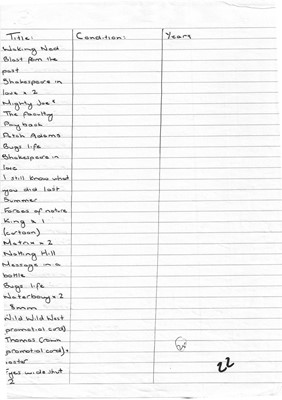 Title: Condition: Years
Waking Ned
Blast from the
past
Shakespeare in
love x 2
Mighty Joe
The Faculty
Payback
Patch Adams
Bugs life
Shakespeare in
love
I still know what
you did last
Summer
Forces of nature
King x 1
(cartoon)
Matrix x 2
Notting Hill
Message in a
bottle
Bugs life
Waterboy x 2
8mm
Wild Wild West
promotial card)
Thomas Crown
promotial card)
Eyes wide shut
2
22